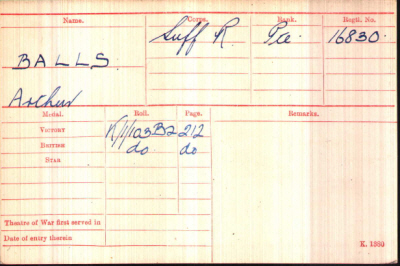 Name. Corps. Rank. Regtl. No.
Suff R. Pte 16830.
BALLS.
Arthur
Medal. Roll. Page. Remarks.
VICTORY K/1/103B2 212
BRITISH do do
STAR
Theatre of War first served in
Date of entry therein
K. 1380